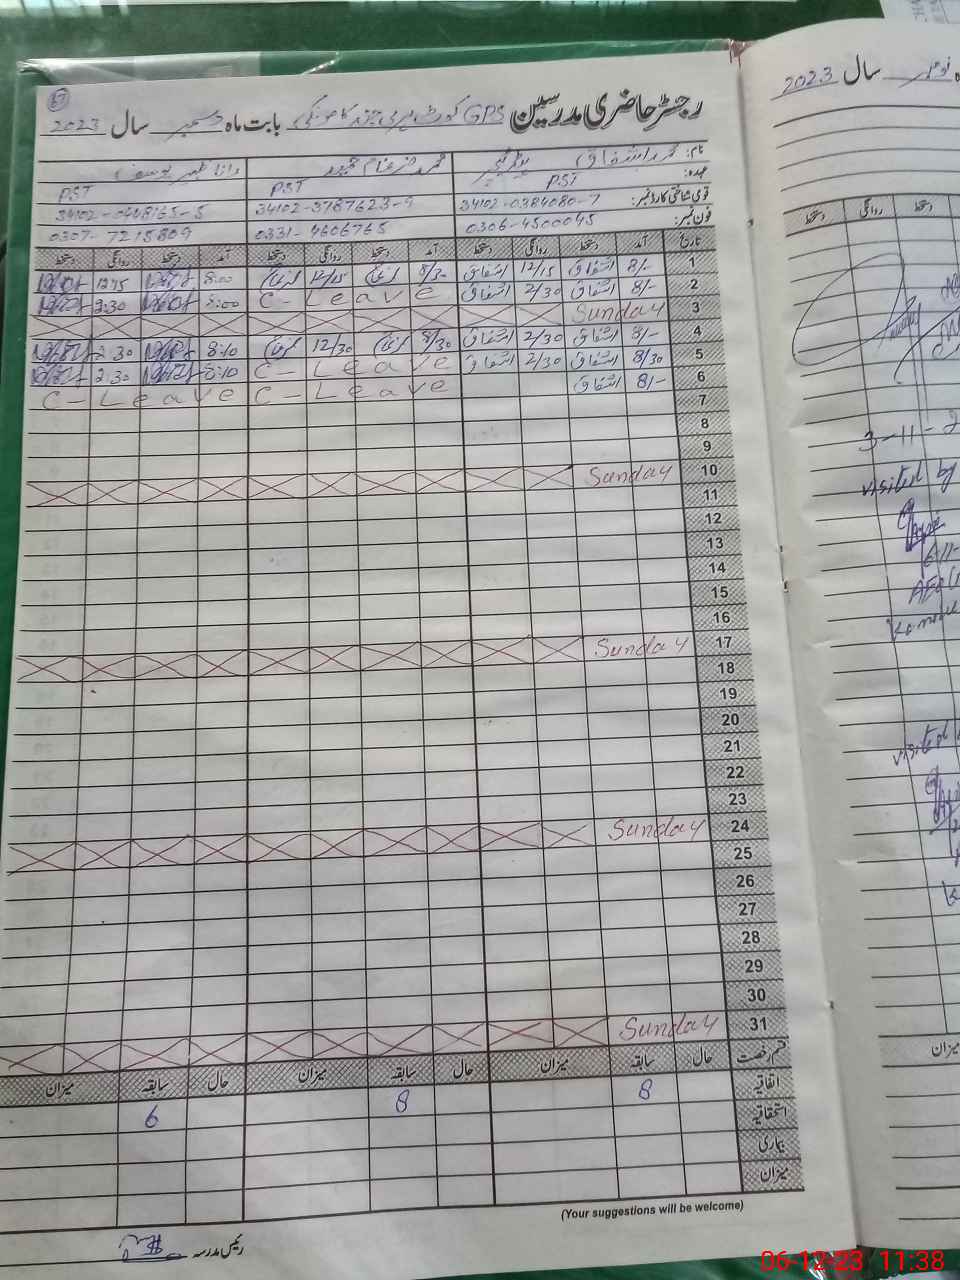 67
رجسٹر حاضری مدرسین GPS کوٹ بابت ماہ دسمبر سال 2023
نام: محمد اشفاق محمد ضرغام محمود رانا ظہیر یوسف
عہدہ: PST PST PST
قومی شناختی کارڈ نمبر: 34102-0384080-7 34102-3767623-9 34102-0448165-5
فون نمبر: 0306-4500045 0331-4606765 0307-7215809
تاریخ آمد دستخط روانگی دستخط آمد دستخط روانگی دستخط آمد دستخط روانگی دستخط
1 8/- اشفاق 12/15 اشفاق 8/30 12/15 8:00 12:15
2 8/- اشفاق 2/30 اشفاق C-Leave 8:00 2:30
3 Sunday
4 8/- اشفاق 2/30 اشفاق 8/30 12/30 8:10 2:30
5 8/30 اشفاق 2/30 اشفاق C-Leave 8:10 2:30
6 8/- اشفاق C-Leave C-Leave
7
8
9
10 Sunday
11
12
13
14
15
16
17 Sunday
18
19
20
21
22
23
24 Sunday
25
26
27
28
29
30
31 Sunday
قسم رخصت حال سابقہ میزان حال سابقہ میزان حال سابقہ میزان
اتفاقیہ 8 8 6
استحقاقیہ
بیماری
میزان
(Your suggestions will be welcome)
رئیس مدرسہ
نومبر سال 2023
دستخط روانگی دستخط
3-11-2
visited by
6-11-
AEO
visited
میزان
06-12-23 11:38